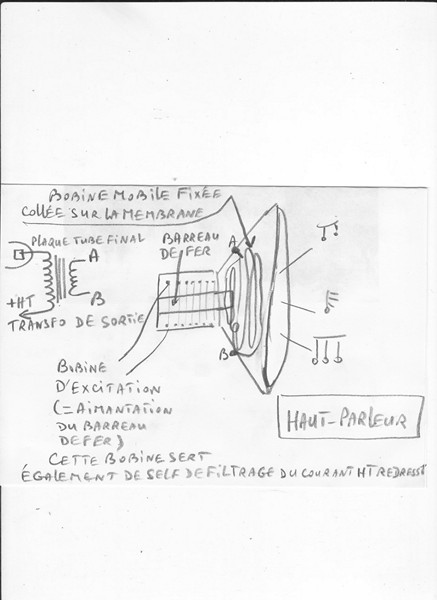 BOBINE MOBILE FIXÉE
COLLÉE SUR LA MEMBRANE
PLAQUE TUBE FINAL
BARREAU
DE FER
A
A
B
+HT
TRANSFO DE SORTIE
B
BOBINE
D'EXCITATION
(= AIMANTATION
DU BARREAU
DE FER)
HAUT-PARLEUR
CETTE BOBINE SERT
ÉGALEMENT DE SELF DE FILTRAGE DU COURANT HT REDRESSÉ